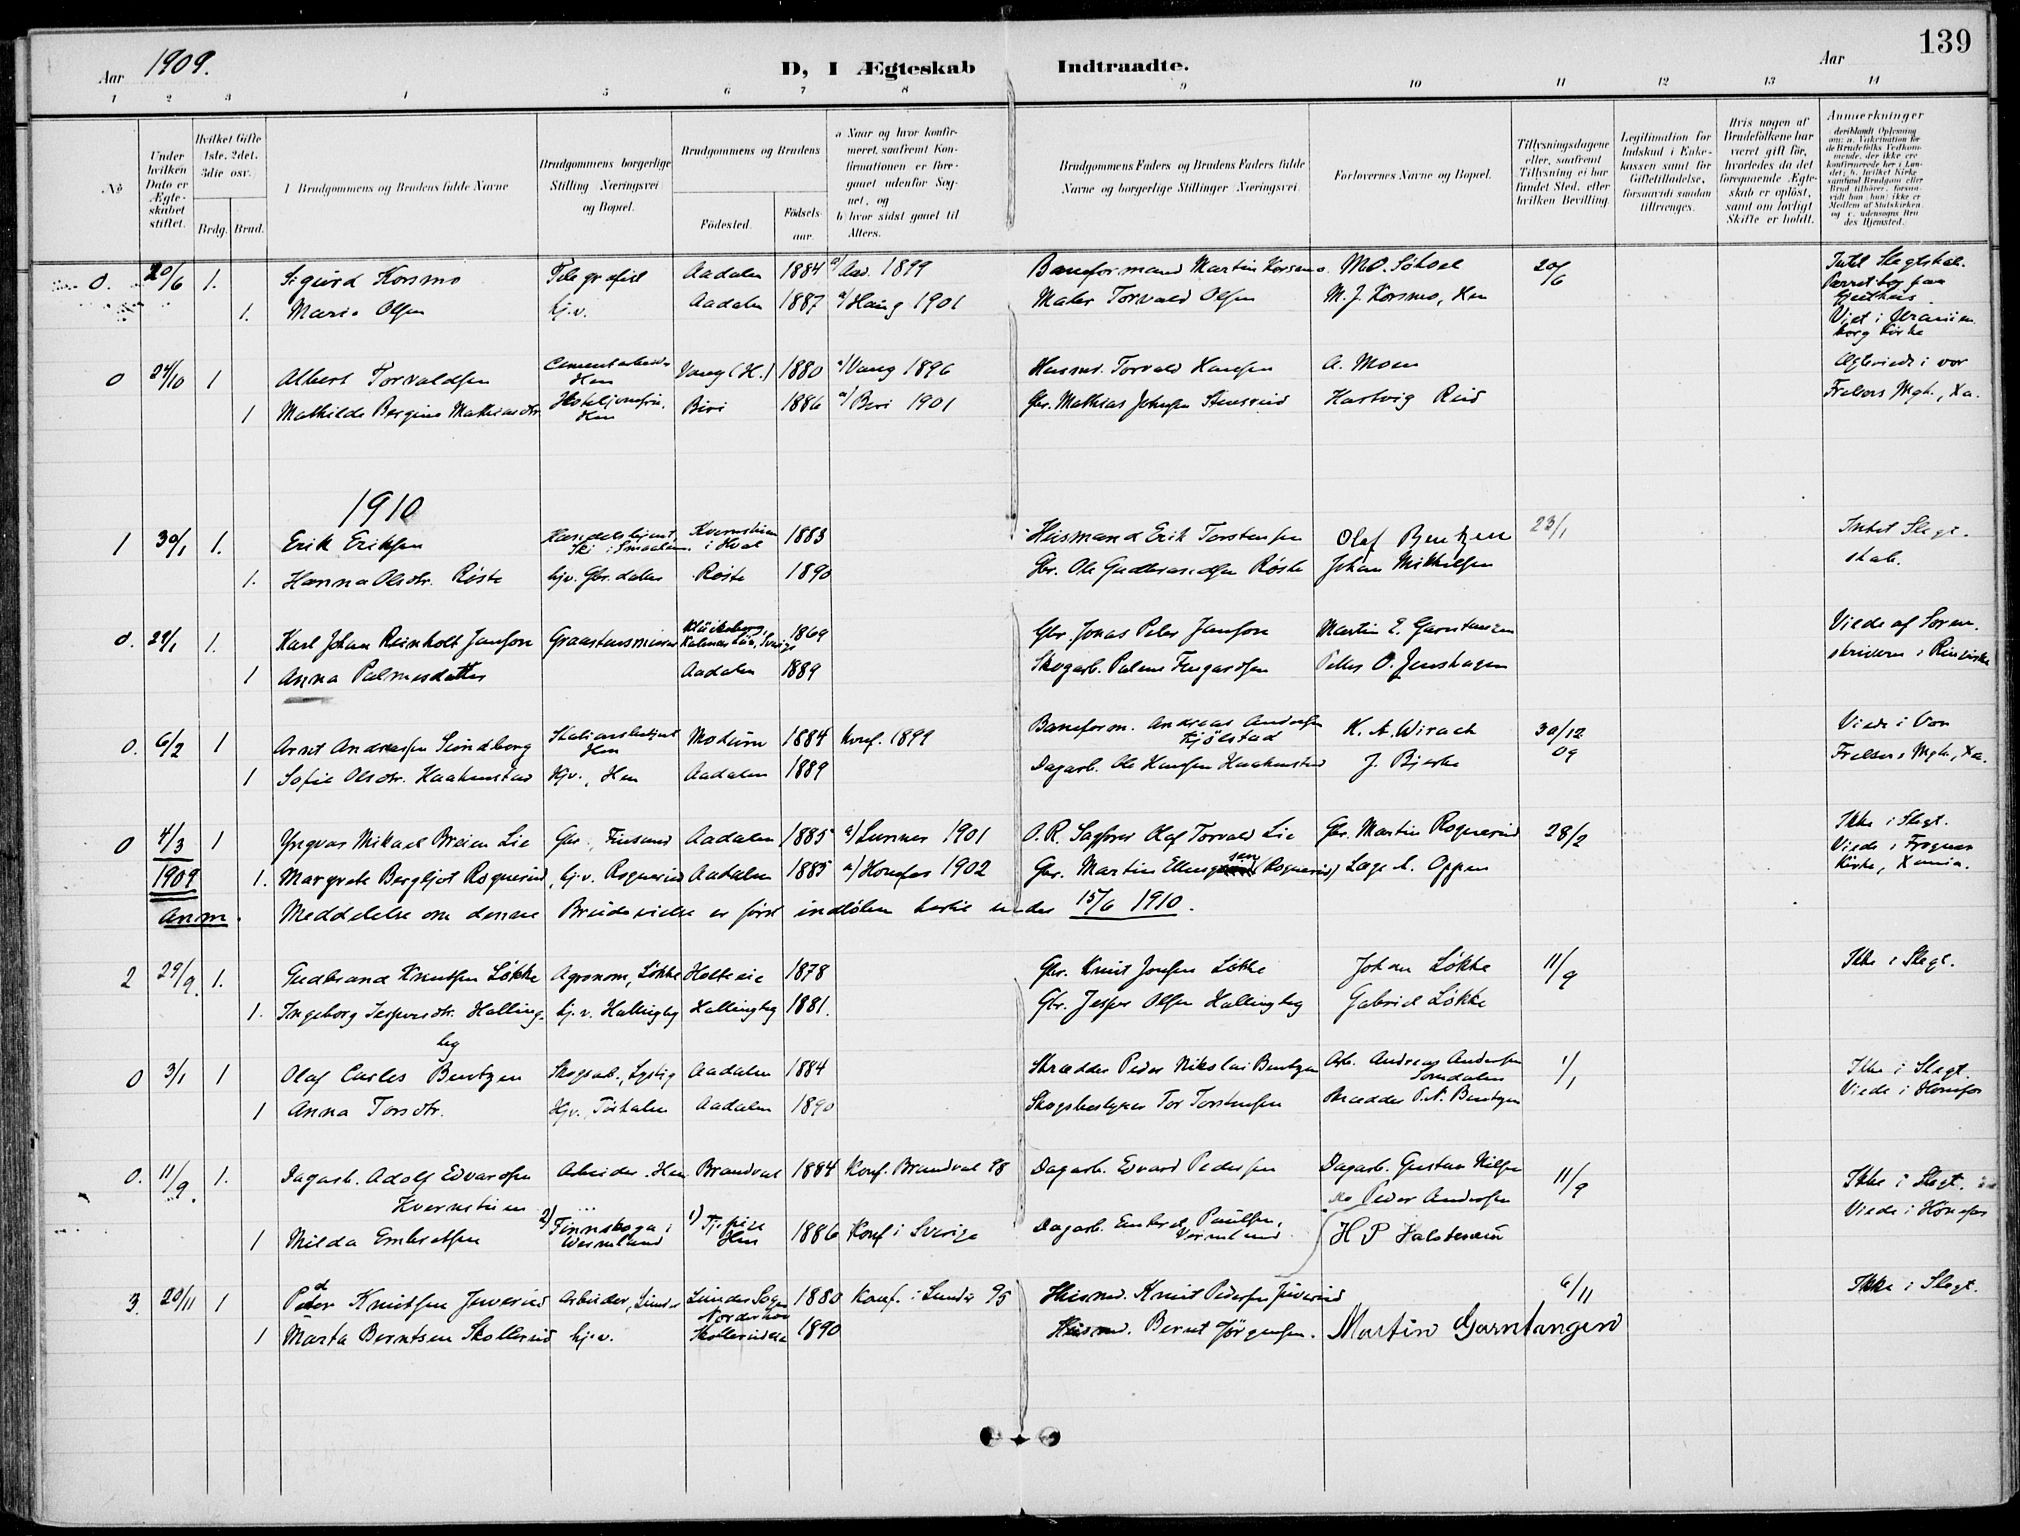 139
Aar 1909.
D, I Ægteskab Indtraadte.
Aar
1 2 3 4 5 6 7 8 9 10 11 12 13 14
No
Under hvilken Dato er Ægteskabet stiftet.
Hvilket Gifte 1ste, 2det, 3die osv.
Brdg. Brud.
Brudgommens og Brudens fulde Navne
Brudgommens borgerlige Stilling Næringsvei og Bopæl.
Brudgommens og Brudens
Fødested.
Fødselsaar.
a Naar og hvor konfirmeret, saafremt Konfirmationen er foregaaet udenfor Sognet, og
b hvor sidst gaaet til Alters.
Brudgommens Faders og Brudens Faders fulde Navne og borgerlige Stillinger Næringsvei.
Forlovernes Navne og Bopæl.
Tillysningsdagene eller, saafremt Tillysning ei har fundet Sted, efter hvilken Bevilling.
Legitimation for Indskud i Enkekassen samt for Giftetilladelse, forsaavidt saadan tiltrænges.
Hvis nogen af Brudefolkene har været gift før, hvorledes da det foregaaende Ægteskab er opløst, samt om lovligt Skifte er holdt.
Anmærkninger
0. 20/6 1. Sigurd Korsmo Telegrafist Aadalen 1884 a/ Aad. 1899 Baneformand Martin Korsmo. M.O. Sökol 20/6 Intet Slegtskab.
1. Marie Olsen hj.v. Aadalen 1887 a/ Haug 1901 Maler Torvald Olsen M. J. Korsmo, Hen
Viet i Uranienborg Kirke
0 24/10 1 Albert Torvaldsen Cementarbeider Hen Vang (H.) 1880 a/ Vang 1896 Husm. Torvald Hansen A. Moen Ægteviede i vor
1 Mathilde Bergine Mathiasdtr. Hen Biri 1886 a/ Biri 1901 Gbr. Mathias Johnsen Hartvig Rud Frelsers Mgh., Xa.
1910
1 30/1 1. Erik Eriksen Handelsbetjent, Ski i Smaalen. i Hval 1883 Husmand Erik Torstensen Olaf Bentzen 23/1 Intet Slegt-
1. Hanna Olsdtr. Røste hjv. Gbr. datter Røste 1890 Gbr. Ole Gudbrandsen Røste Johan Mikkelsen skab.
0. 29/1 1. Karl Johan Reinholt Jansson Graastensminør Kalmar Län, Sverige 1869 Gbr. Jonas Peter Jansson Martin E. Garntangen Viede af Soren-
1 Anna Palmesdatter Aadalen 1889 Skogarb. Palme Peder O. Jenshagen skriveren i Ringerike
0. 6/2 1 Arnt Andreassen Sundborg Stationsbetjent Hen Modum 1884 Konf. 1899 Baneform. Andreas Andersen Kjölstad K. A. Wirach 30/12 09 Viede i Vor
1 Sofie Olsdtr. Haakenstad Hjv., Hen Aadalen 1889 Dagarb. Ole Hansen Haakenstad J. Bjerke Frelsers Mgh., Xa.
0 4/3 1909 1 Yngvar Mikael Breien Lie Gbr., Finsand Aadalen 1885 a) Lunner 1901 O.R. Sagfører Olaf Torvald Lie Gbr. Martin Rognerud 28/2 Ikke i Slegt.
1. Margrete Bergljot Rognerud, hj.v. Rognerud Aadalen 1885 a) Honefos 1902 Gbr. Martin Ellingsen (Rognerud) Lage A. Oppen Viede i Frogner Kirke, Xania.
Anm. Meddelelse om denne Brudevielse er først indløben hertil under 15/6 1910.
2 29/9. 1. Gudbrand Knutsen Løkke Agronom, Løkke 1878 Gbr. Knut Jonsen Løkke Johan Løkke 11/9 Ikke i Slegt.
1. Ingeborg Jespersdtr. Hallingby hj.v. Hallingby Hallingby 1881. Gbr. Jesper Olsen Hallingby Gabriel Løkke
0 3/1 1 Olaf Carles Bentzen Skogsarb., Lystig Aadalen 1884 Skrædder Peder Nikolai Bentzen Arb. Andreas Andersen Somdalen 1/1 Ikke i Slegt.
1 Anna Torsdtr. Hjv., Aadalen 1890 Skogsbestyrer Tor Torstensen Skrædder P.N. Bentzen Viede i Honefos
0. 11/9. 1. Dagarb. Adolf Edvardsen Kvernstuen Arbeider. Hen Brandval 1884 Konf. Brandval 98 Dagarb. Edvard Pedersen Dagarb. Gustav Nilsen 11/9 Ikke i Slegt.
do Peder Andersen Viede i Hønefos
1 Milda Embretsen 2) Finnskoga i Wermland 1) Tj.pige Hen 1886 Konf i Sverige Dagarb. Embret Paulsen, Vermland. H P Halstensen
3. 20/11 1 Peder Knutsen Juverud Arbeider, Lunder Lunder Sogn Norderhov 1880 Konf. i Lunder 95 Husmd. Knut Pedersen Juverud 6/11 Ikke i Slegt.
1 Marta Berntsen Skollerud hj.v. 1890 Husmd. Bernt Jörgensen. Martin Garntangen